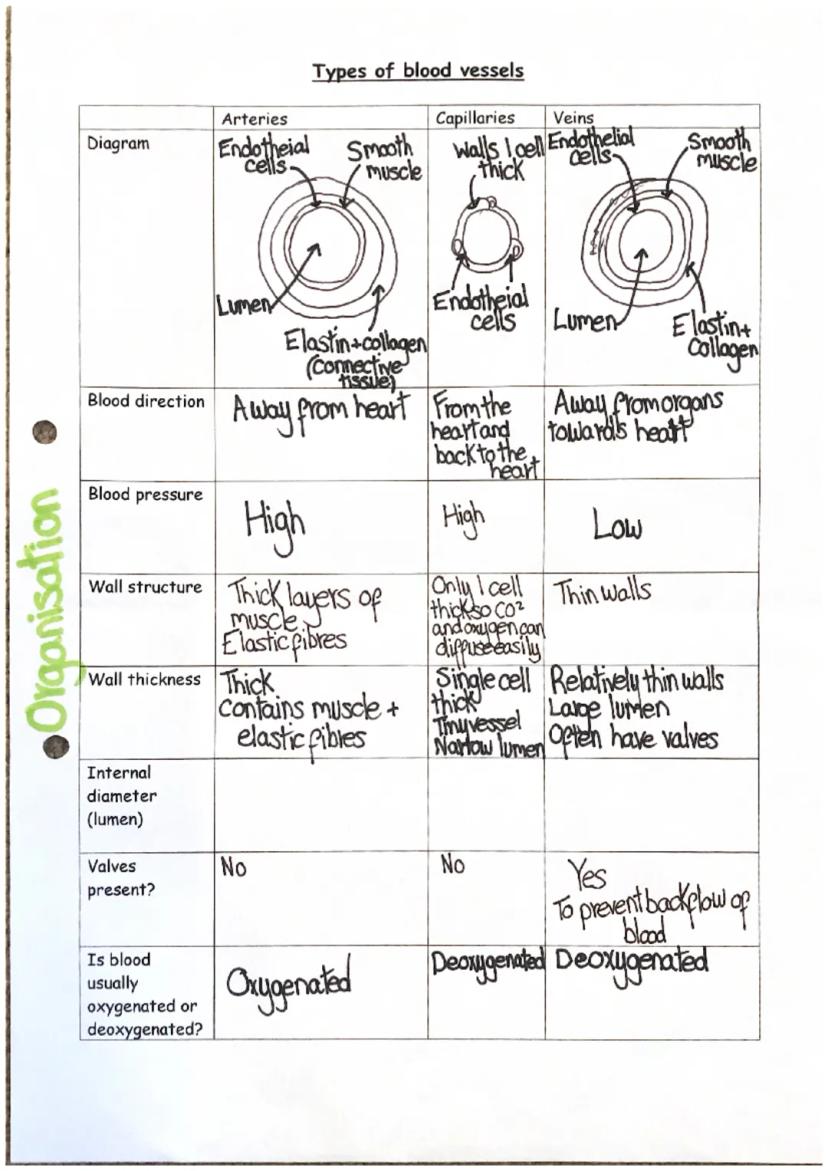 Types of blood vessels
Arteries
Capillaries
Veins
Diagram
Endotheial
cells
Smooth
muscle
Lumen
Elastin+collagen
(connective
tissue)
Walls 1 cell
thick
Endotheial
cells
Endothelial
cells
Smooth
muscle
Lumen
Elastin+
Collagen
Blood direction
Away from heart
From the
heart and
back to the
heart
Away from organs
towards heart
Blood pressure
High
High
Low
Wall structure
Thick layers of
muscle
Elastic fibres
Only 1 cell
thick so CO²
and oxygen can
diffuse easily
Thin walls
Wall thickness
Thick
Contains muscle +
elastic fibres
Single cell
thick
Tiny vessel
Narrow lumen
Relatively thin walls
Large lumen
Often have valves
Internal
diameter
(lumen)
Valves
present?
No
No
Yes
To prevent backflow of
blood
Is blood
usually
oxygenated or
deoxygenated?
Oxygenated
Deoxygenated
Deoxygenated
Organisation